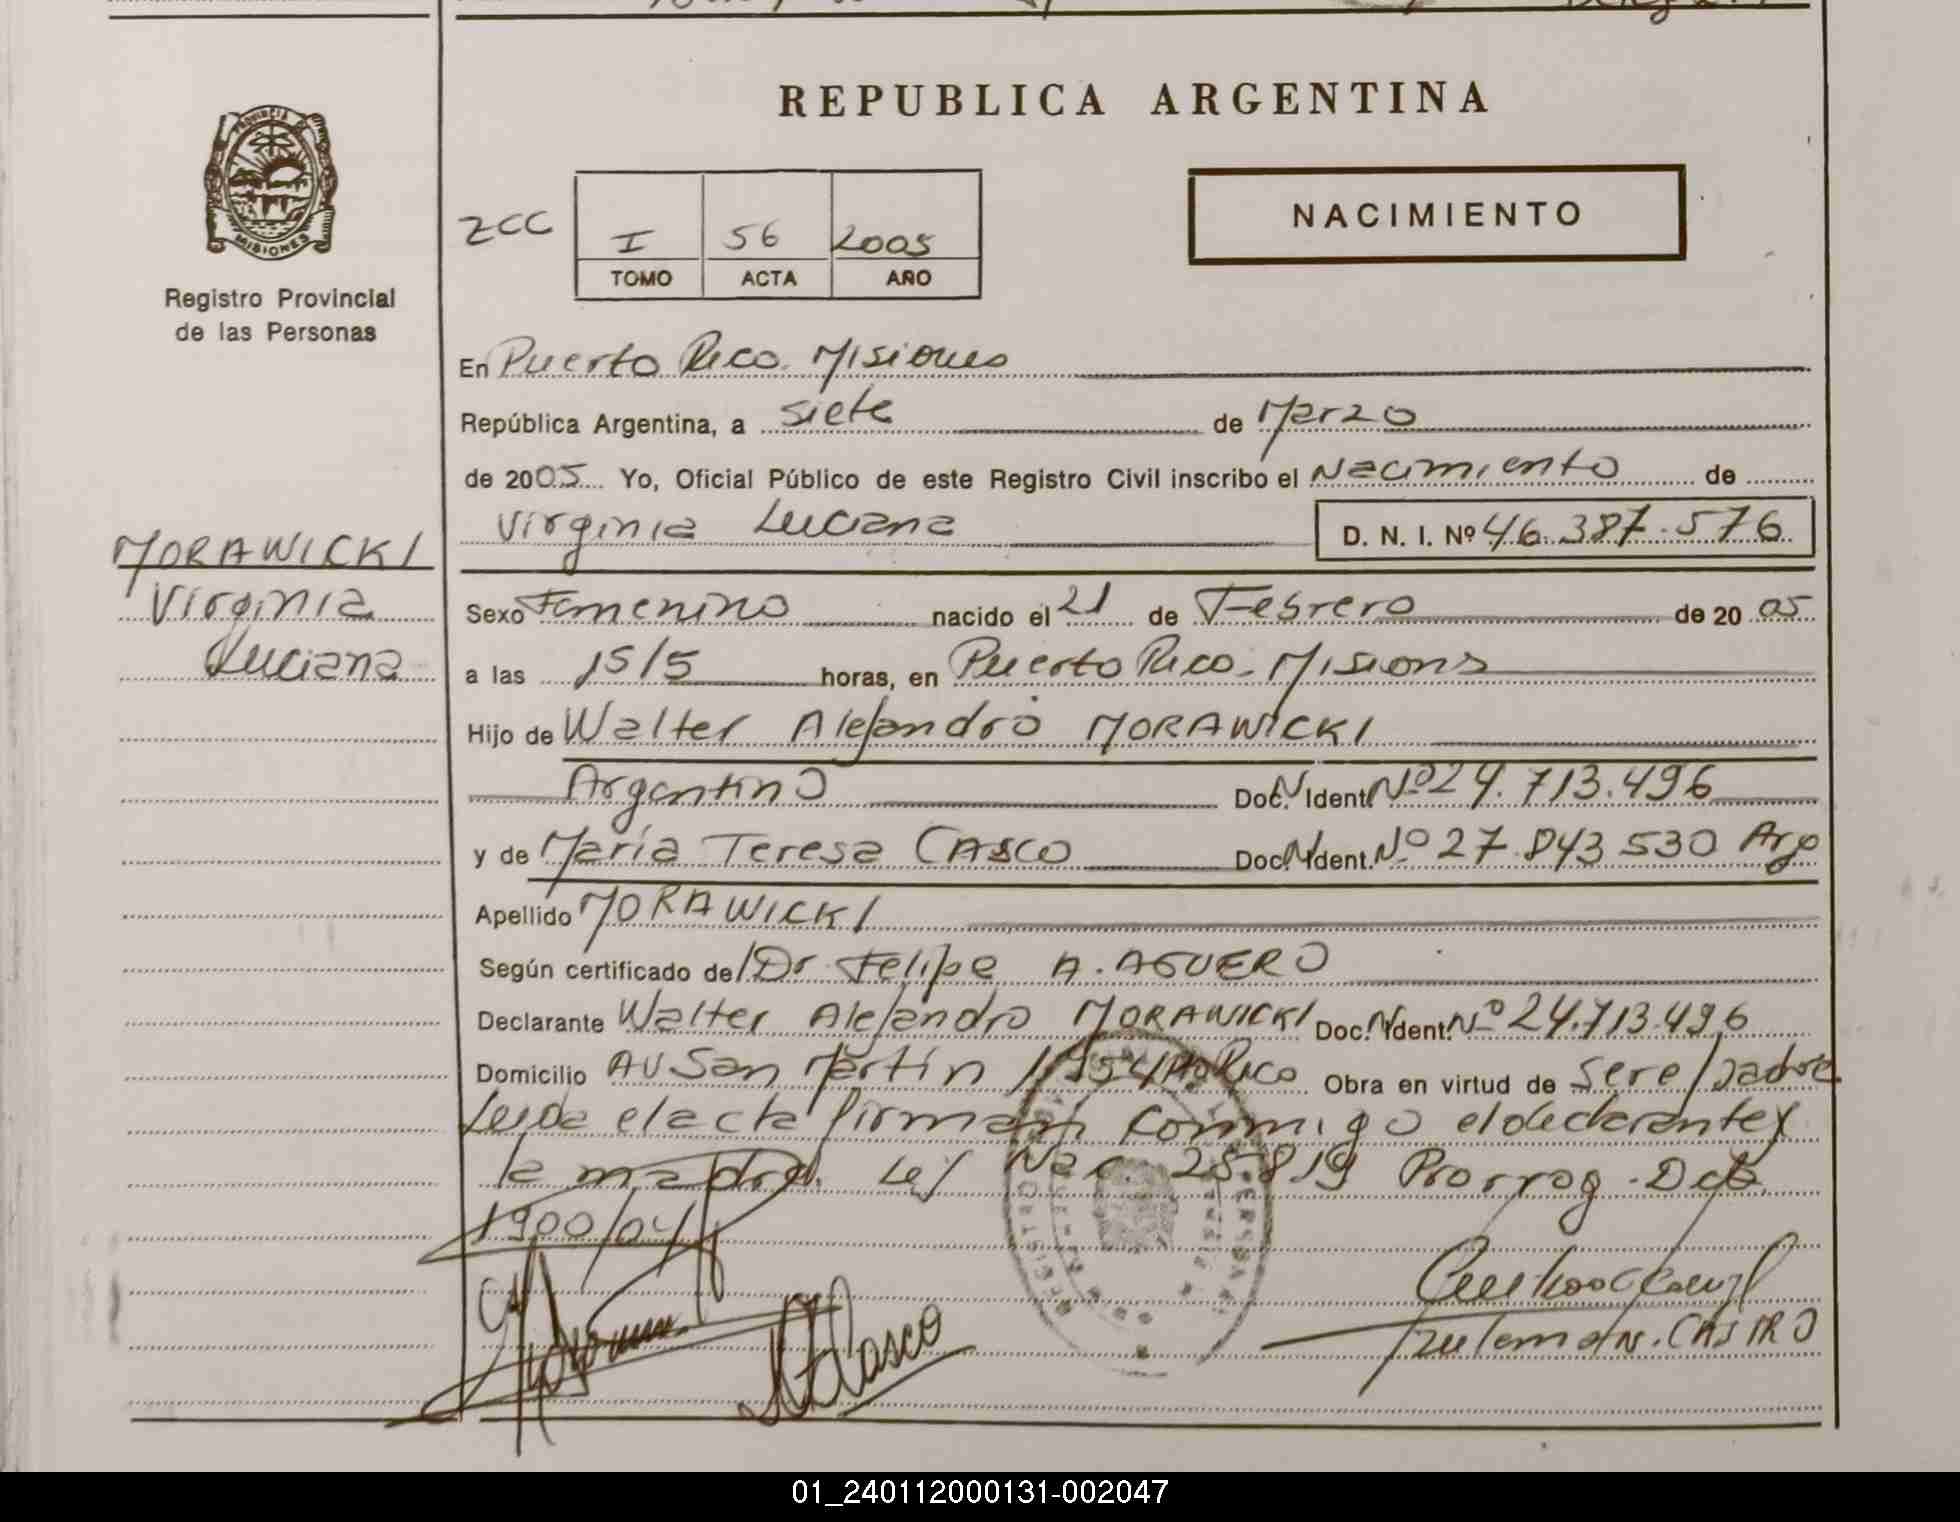 REPUBLICA ARGENTINA
PROVINCIA DE
MISIONES
Registro Provincial
de las Personas
NACIMIENTO
ZCC I 56 2005
TOMO ACTA AÑO
En Puerto Rico. Misiones
República Argentina, a siete de Marzo
de 2005 Yo, Oficial Público de este Registro Civil inscribo el Nacimiento de
Virginia Luciana D. N. I. Nº 46.387.576
MORAWICKI
Virginia
Luciana
Sexo Femenino nacido el 21 de Febrero de 2005
a las 15/5 horas, en Puerto Rico. Misions
Hijo de Walter Alejandro MORAWICKI
Argentino Doc. Ident. Nº 24.713.496
y de María Teresa CASCO Doc. Ident. Nº 27.843.530 Arg
Apellido MORAWICKI
Según certificado de/ Dr. Felipe A. AGUERO
Declarante Walter Alejandro MORAWICKI Doc. Ident. Nº 24.713.496
Domicilio AV San Martín Pto Rico Obra en virtud de ser el padre
Leída el acta firman conmigo el declarante y
la madre. Ley Nac. 25.819 Prorrog. Dcto
1900/04
Casco
N. CASTRO
01_240112000131-002047